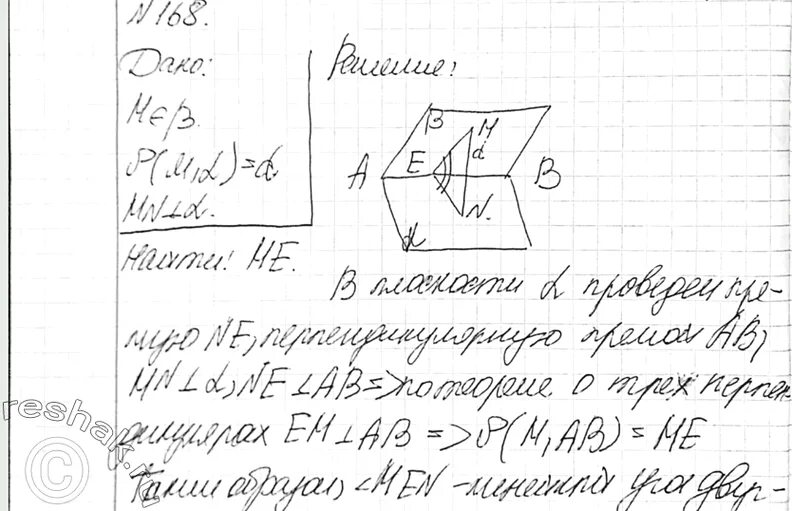 N168.
Дано:
M∈β.
ρ(M,α)=d
MN⊥α.
Найти: ME.
Решение:
β M
d
A E B
N.
α
В плоскости α проведем пря-
мую NE, перпендикулярную прямой AB,
MN⊥α, NE⊥AB=>по теореме о трех перпен-
дикулярах EM⊥AB=>ρ(M,AB)=ME
Таким образом, ∠MEN -линейный угол двугр-
reshak.ru